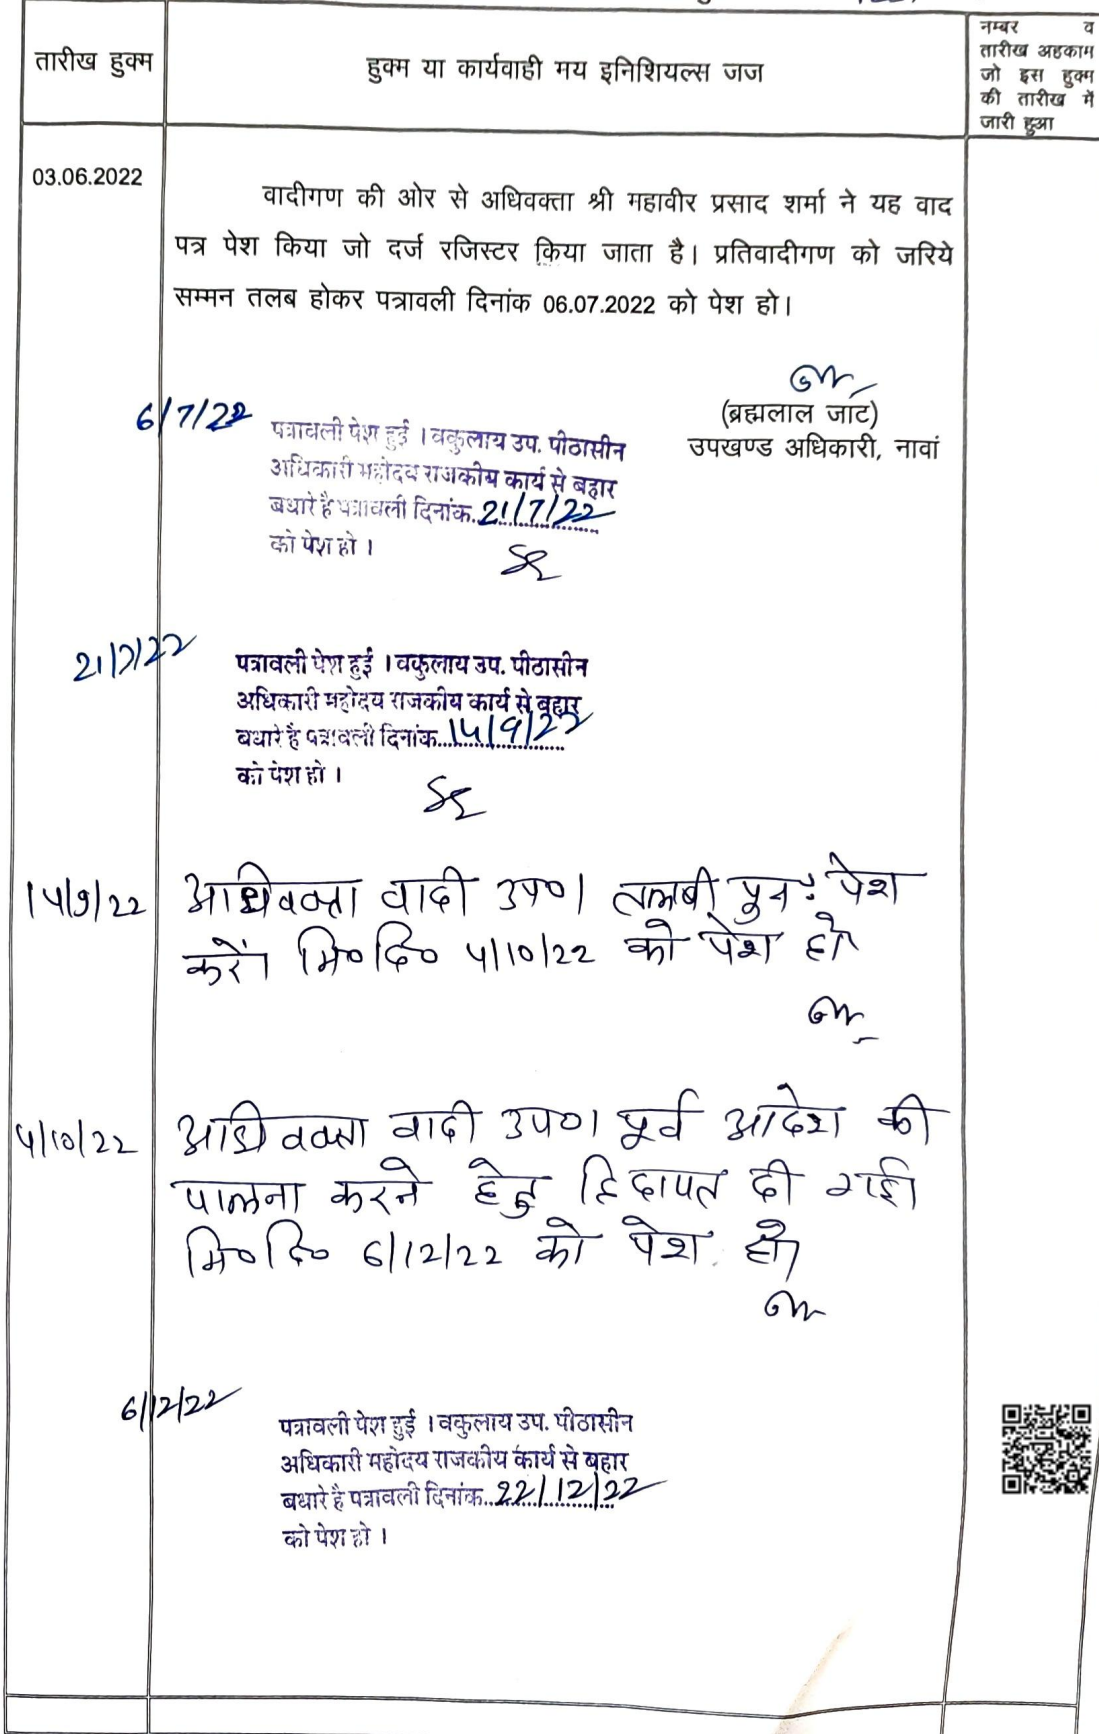 तारीख हुक्म
हुक्म या कार्यवाही मय इनिशियल्स जज
नम्बर व
तारीख अहकाम
जो इस हुक्म
की तारीख में
जारी हुआ
03.06.2022
वादीगण की ओर से अधिवक्ता श्री महावीर प्रसाद शर्मा ने यह वाद
पत्र पेश किया जो दर्ज रजिस्टर किया जाता है। प्रतिवादीगण को जरिये
सम्मन तलब होकर पत्रावली दिनांक 06.07.2022 को पेश हो।
(ब्रह्मलाल जाट)
उपखण्ड अधिकारी, नावां
6/7/22
पत्रावली पेश हुई । वकुलाय उप. पीठासीन
अधिकारी महोदय राजकीय कार्य से बहार
बधारे है पत्रावली दिनांक..21/7/22
को पेश हो ।
21/7/22
पत्रावली पेश हुई । वकुलाय उप. पीठासीन
अधिकारी महोदय राजकीय कार्य से बहार
बधारे है पत्रावली दिनांक..14/9/22
को पेश हो ।
14/9/22
अधिवक्ता वादी उप०। तलबी पुनः पेश
करें। मि०दि० 4/10/22 को पेश हो
4/10/22
अधिवक्ता वादी उप०। पूर्व आदेश की
पालना करने हेतु हिदायत दी गई।
मि०दि० 6/12/22 को पेश हो।
6/12/22
पत्रावली पेश हुई । वकुलाय उप. पीठासीन
अधिकारी महोदय राजकीय कार्य से बहार
बधारे है पत्रावली दिनांक..22/12/22
को पेश हो ।